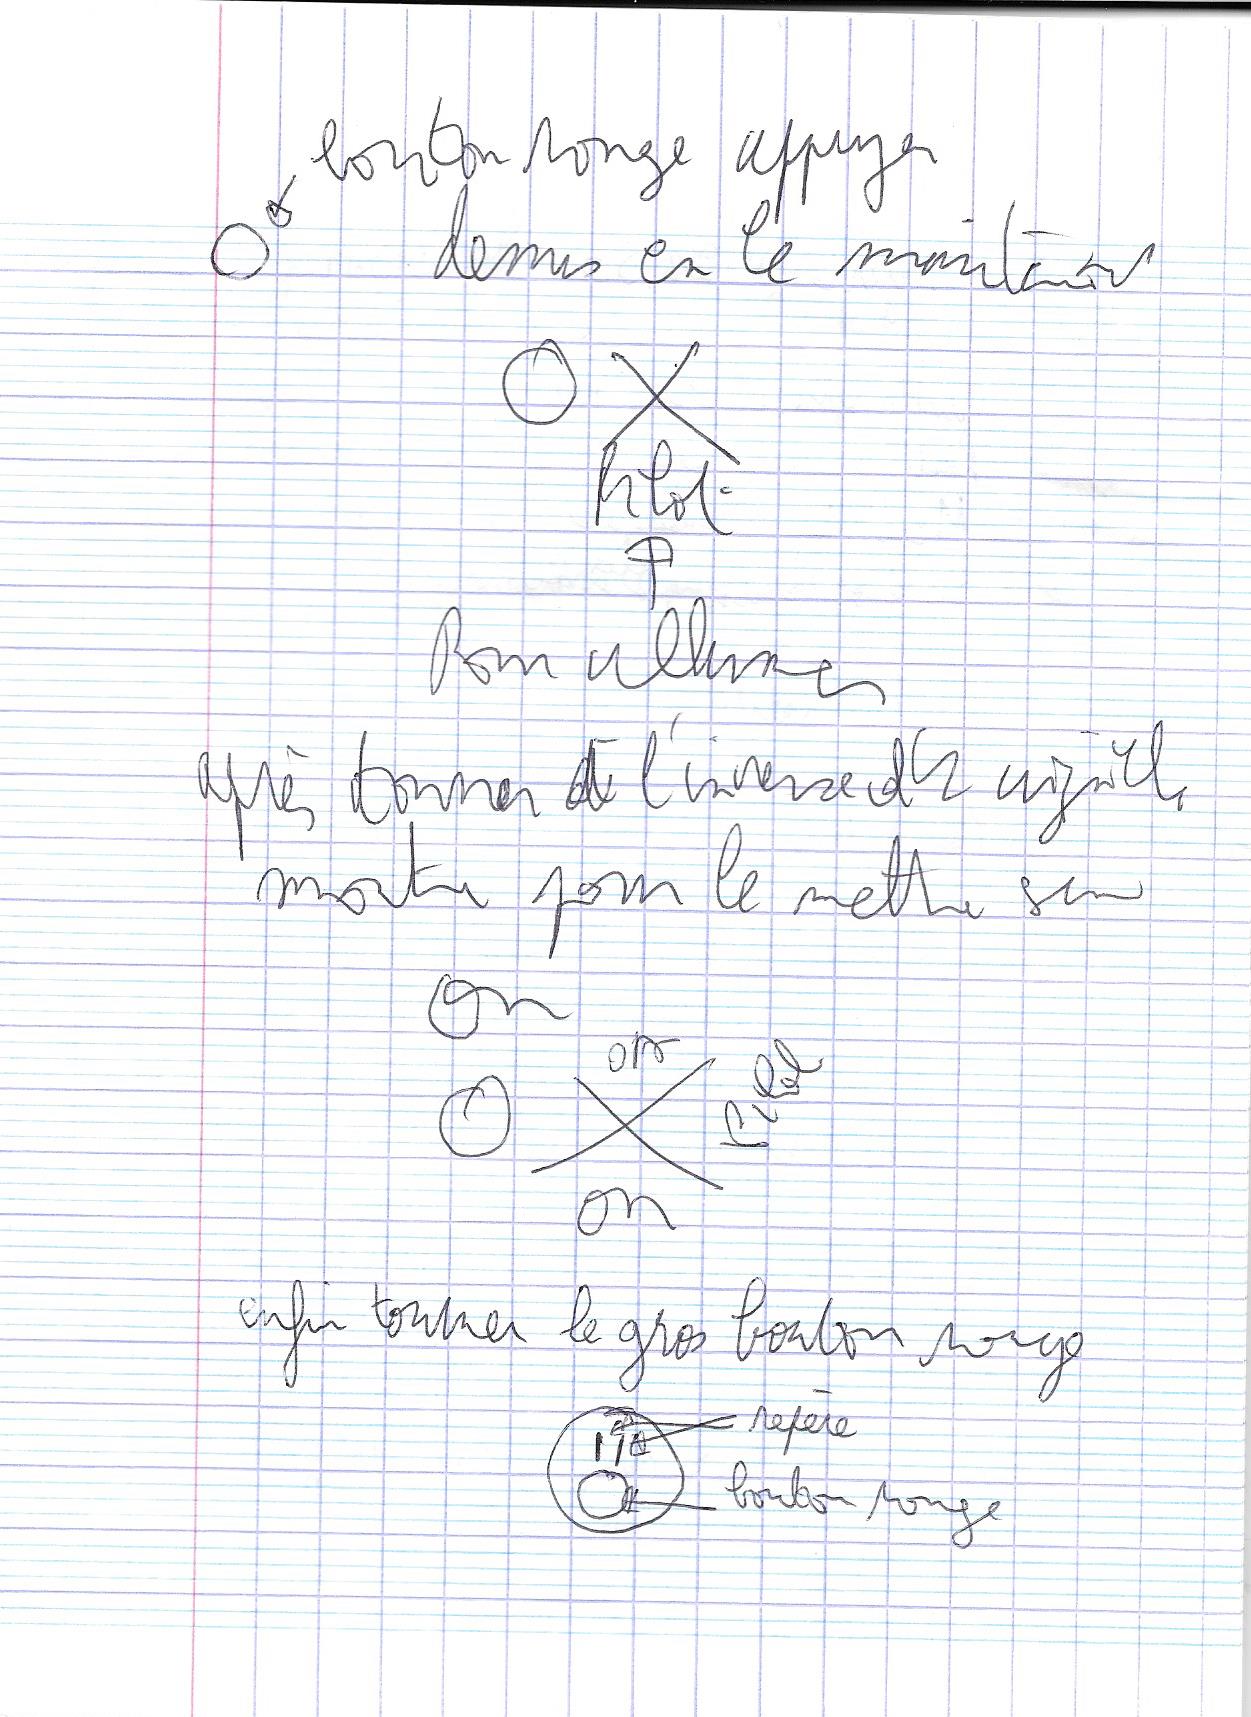 bouton rouge appuyer
dessus en le maintenant
Pilot
Pour allumer
après tourner de l'inverse d'1 aiguille
montre pour le mettre sur
on
off
Pilot
on
enfin tourner le gros bouton rouge
repère
bouton rouge